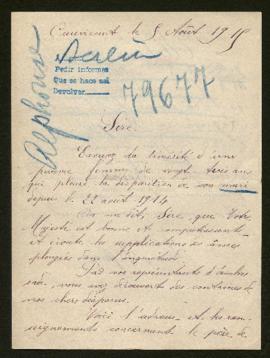 Cauvicourt le 5 Août 1915
Alphonse
Pedir informes
Que se hace así
Devolver
79677
Sire,
Excusez la timidité d'une
pauvre femme de vingt trois ans
qui pleure la disparition de son mari
depuis le 22 août 1914
On m'a dit, Sire, que Votre
Majesté est bonne et compatissante
et écoute les supplications des âmes
plongées dans l'inquiétude.
vos représentants
nos chers disparus.
Voici l'adresse et les ren-
seignements concernant le père de